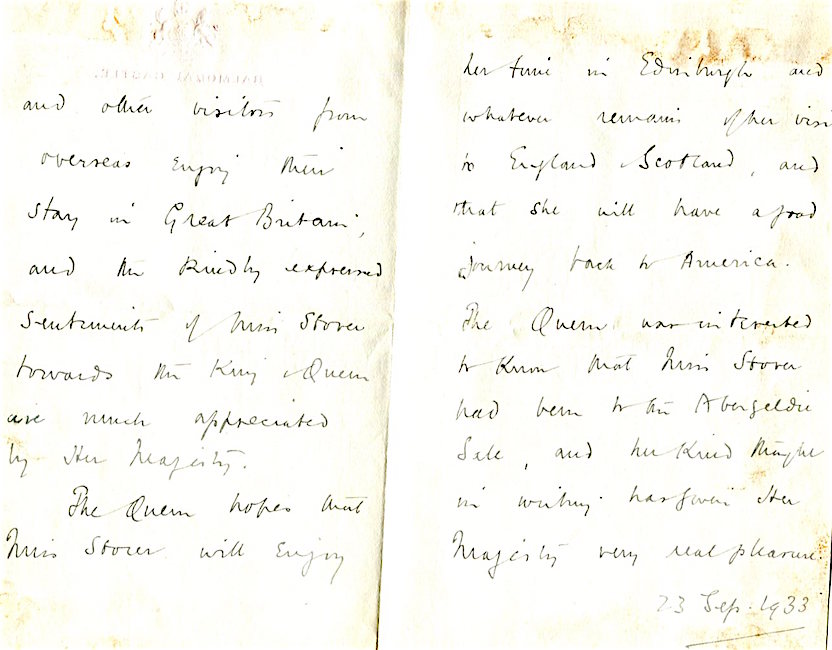 BALMORAL CASTLE.
and other visitors from
overseas enjoy their
stay in Great Britain,
and the kindly expressed
sentiments of Miss Storer
towards the King & Queen
are much appreciated
by Her Majesty.
The Queen hopes that
Miss Storer will enjoy
her time in Edinburgh and
whatever remains of her visit
to England & Scotland, and
that she will have a good
journey back to America.
The Queen was interested
to know that Miss Storer
had been to the Abergeldie
Sale, and her kind thought
in writing has given Her
Majesty very real pleasure.
23 Sep. 1933